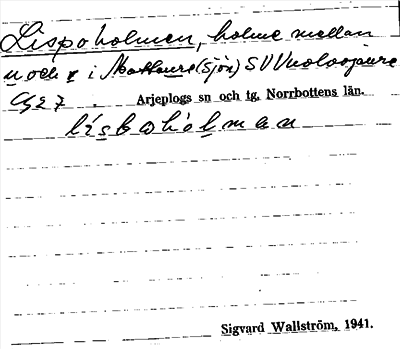 Lispoholmen, holme mellan
n och r i Mattaure (sjön) SV Vuolosjaure
C§27. Arjeplogs sn och tg, Norrbottens län.
lisboholman
Sigvard Wallström, 1941.